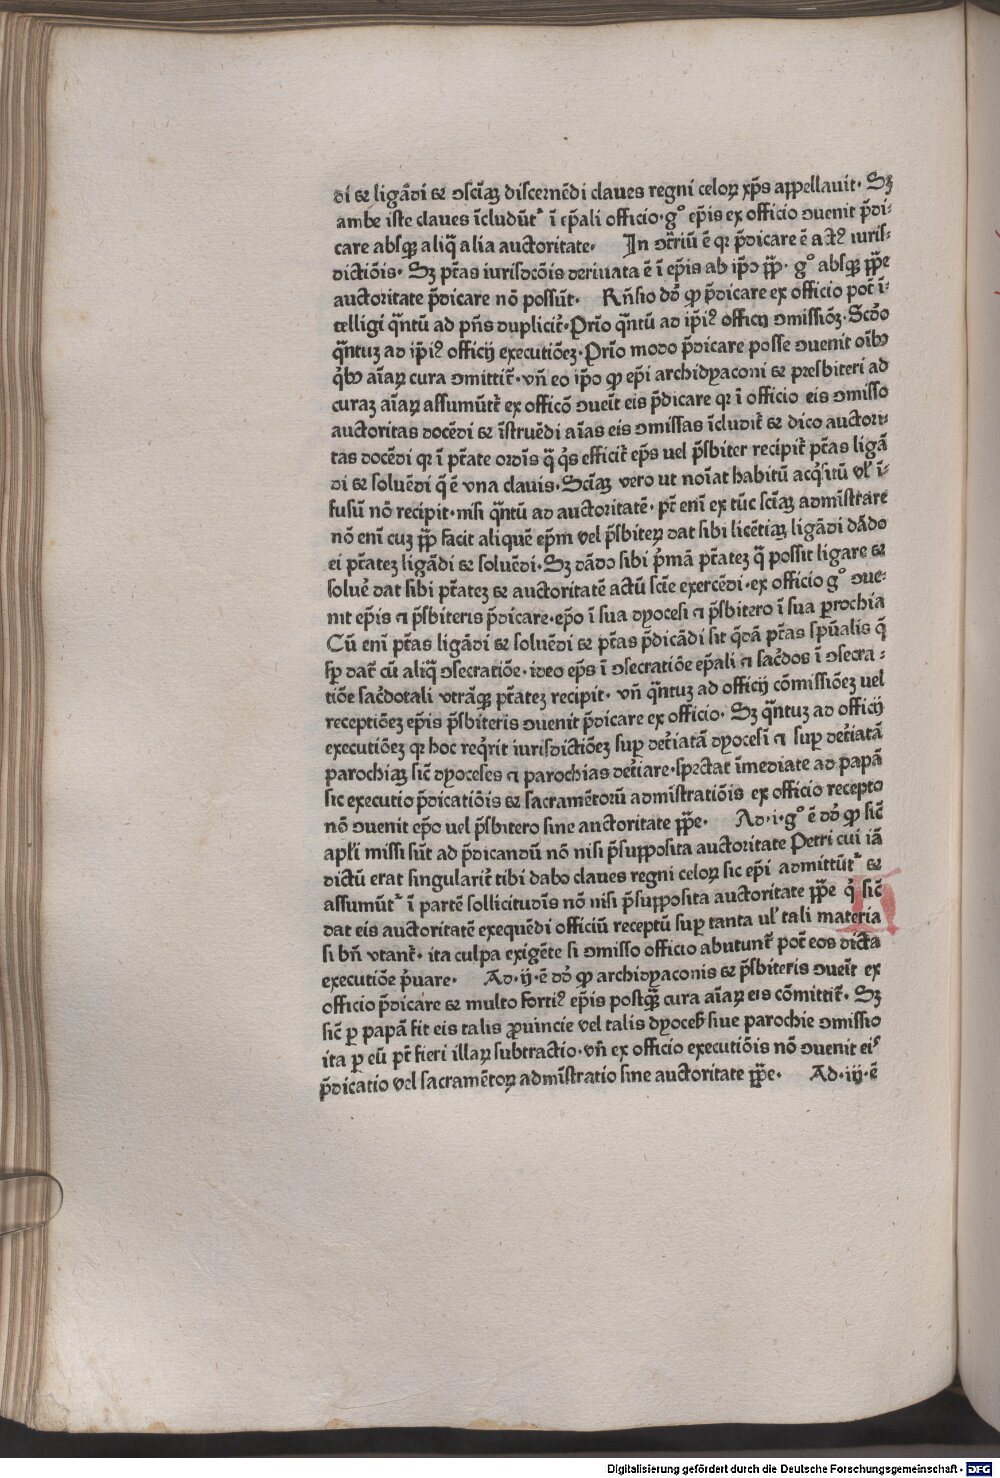 di ⁊ ligādi ⁊ ↄsciāꝫ discernēdi claues regni celoꝝ xp̄s appellauit· Sꝫ
ambe iste claues īcludūt᷑ ī ep̄ali officio·gº ep̄is ex officio ↄuenit p̄di-
care absqꝫ aliq̄ alia auctoritate· In ↄt̄riū ē qꝛ p̄dicare ē actꝰ iuris-
dictiōis· Sꝫ ptā̄s iurisdcōis deriuata ē ī ep̄is ab ip̄o pp̄· gº absqꝫ pp̄e
auctoritate p̄dicare nō possūt· Rn̄sio dō ꝙ p̄dicare ex officio pōt ī-
telligi q̄ntū ad pn̄s duplicit̄·Prīo q̄ntū ad ip̄iꝰ officij ↄmissiōꝫ·Scd̄o
q̄ntuꝫ ad ip̄iꝰ officij executiōeꝫ·Prīo modo p̄dicare posse ↄuenit oībꝰ
q̇bꝰ aīaꝝ cura ↄmittit̄·vn̄ eo ip̄o ꝙ ep̄i archidyaconi ⁊ presbiteri ad
curaꝫ aīaꝝ assumūt᷑ ex officō ↄueīt eis p̄dicare qꝛ ī officio eis ↄmisso
auctoritas docēdi ⁊ īstruēdi aīas eis ↄmissas īcludit᷑ ⁊ dico auctori-
tas docēdi qꝛ ī pt̄ate ordīs q̄ q̇s efficit᷑ ep̄s uel p̄sbiter recipit᷑ pt̄as ligā
di ⁊ soluēdi q̄ ē vna clauis·Sciāꝫ vero ut noīat habitū acq̇situ̅ vl̓ ī-
fusū nō recipit·nisi q̄ntū ad auctoritatē· pt̄ enī ex tūc sciāꝫ admīstrare
nō enī cuꝫ pp̄ facit aliquē ep̄m vel p̄sbiteꝝ dat sibi licētiaꝫ ligādi dādo
ei pt̄ateꝫ ligādi ⁊ soluēdi·Sꝫ dādo sibi p̄mā pt̄ateꝫ q̄ possit ligare ⁊
soluē dat sibi pt̄ateꝫ ⁊ auctoritatē actū sciē exercēdi·ex officio gº ↄue-
nit ep̄is ꞇ p̄sbiteris p̄dicare·ep̄o ī sua dyocesi ꞇ p̄sbitero ī sua ꝑrochia
Cū enī pt̄as ligādi ⁊ soluēdi ⁊ pt̄as p̄dicādi sit q̄dā pt̄as spūalis q̄
sꝑ dat᷑ cū aliq̄ ↄsecratiōe·ideo ep̄s ī ↄsecratiōe ep̄ali ꞇ sac̓dos ī ↄsecra-
tiōe sac̓dotali vtrāqꝫ pt̄ateꝫ recipit· vn̄ q̄ntuꝫ ad officij cōmissiōeꝫ uel
receptiōeꝫ ep̄is p̄sbiteris ↄuenit p̄dicare ex officio· Sꝫ q̄ntuꝫ ad officij
executiōeꝫ qꝛ hoc req̇rit iurisdictiōeꝫ suꝑ det̓iatā dyocesī ꞇ suꝑ det̓iatā
parochiaꝫ sic̄ dyoceses ꞇ parochias det̓iare·spectat īmediate ad papā
sic executio p̄dicatiōis ⁊ sacramētorū admīstratiōis ex officio recepto
nō ↄuenit ep̄o uel p̄sbitero sine auctoritate pp̄e· Ad·i·gº ē dō ꝙ sic̄
apl̓i missi sūt ad p̄dicandū nō nisi p̄supposita auctoritate Petri cui iā
dictū erat singularit̄ tibi dabo claues regni celoꝝ sic ep̄i admittūt᷑ ⁊
assumūt᷑ ī partē sollicitudīs nō nisi p̄supposita auctoritate pp̄e q̇ sic̄
dat eis auctoritatē exequēdi officiū receptū suꝑ tanta ul̓ tali materia
si bn̄ vtant᷑· ita culpa exigēte si ↄmisso officio abutunt᷑ pōt eos dicta
executiōe p̓uare· Ad·ij·ē dō ꝙ archidyaconis ⁊ p̄sbiteris ↄueīt ex
officio p̄dicare ⁊ multo fortiꝰ ep̄is postqꝫ̄ cura aīaꝝ eis cōmittit᷑· Sꝫ
sic̄ ꝑ papā fit eis talis ꝓuincie vel talis dyoceẜ siue parochie ↄmissio
ita ꝑ eū pt̄ fieri illaꝝ subtractio·vn̄ ex officio executiōis nō ↄuenit eiˢ
p̄dicatio vel sacramētoꝝ admīstratio sine auctoritate pp̄e· Ad·iij·ē
Digitalisierung gefördert durch die Deutsche Forschungsgemeinschaft - DFG